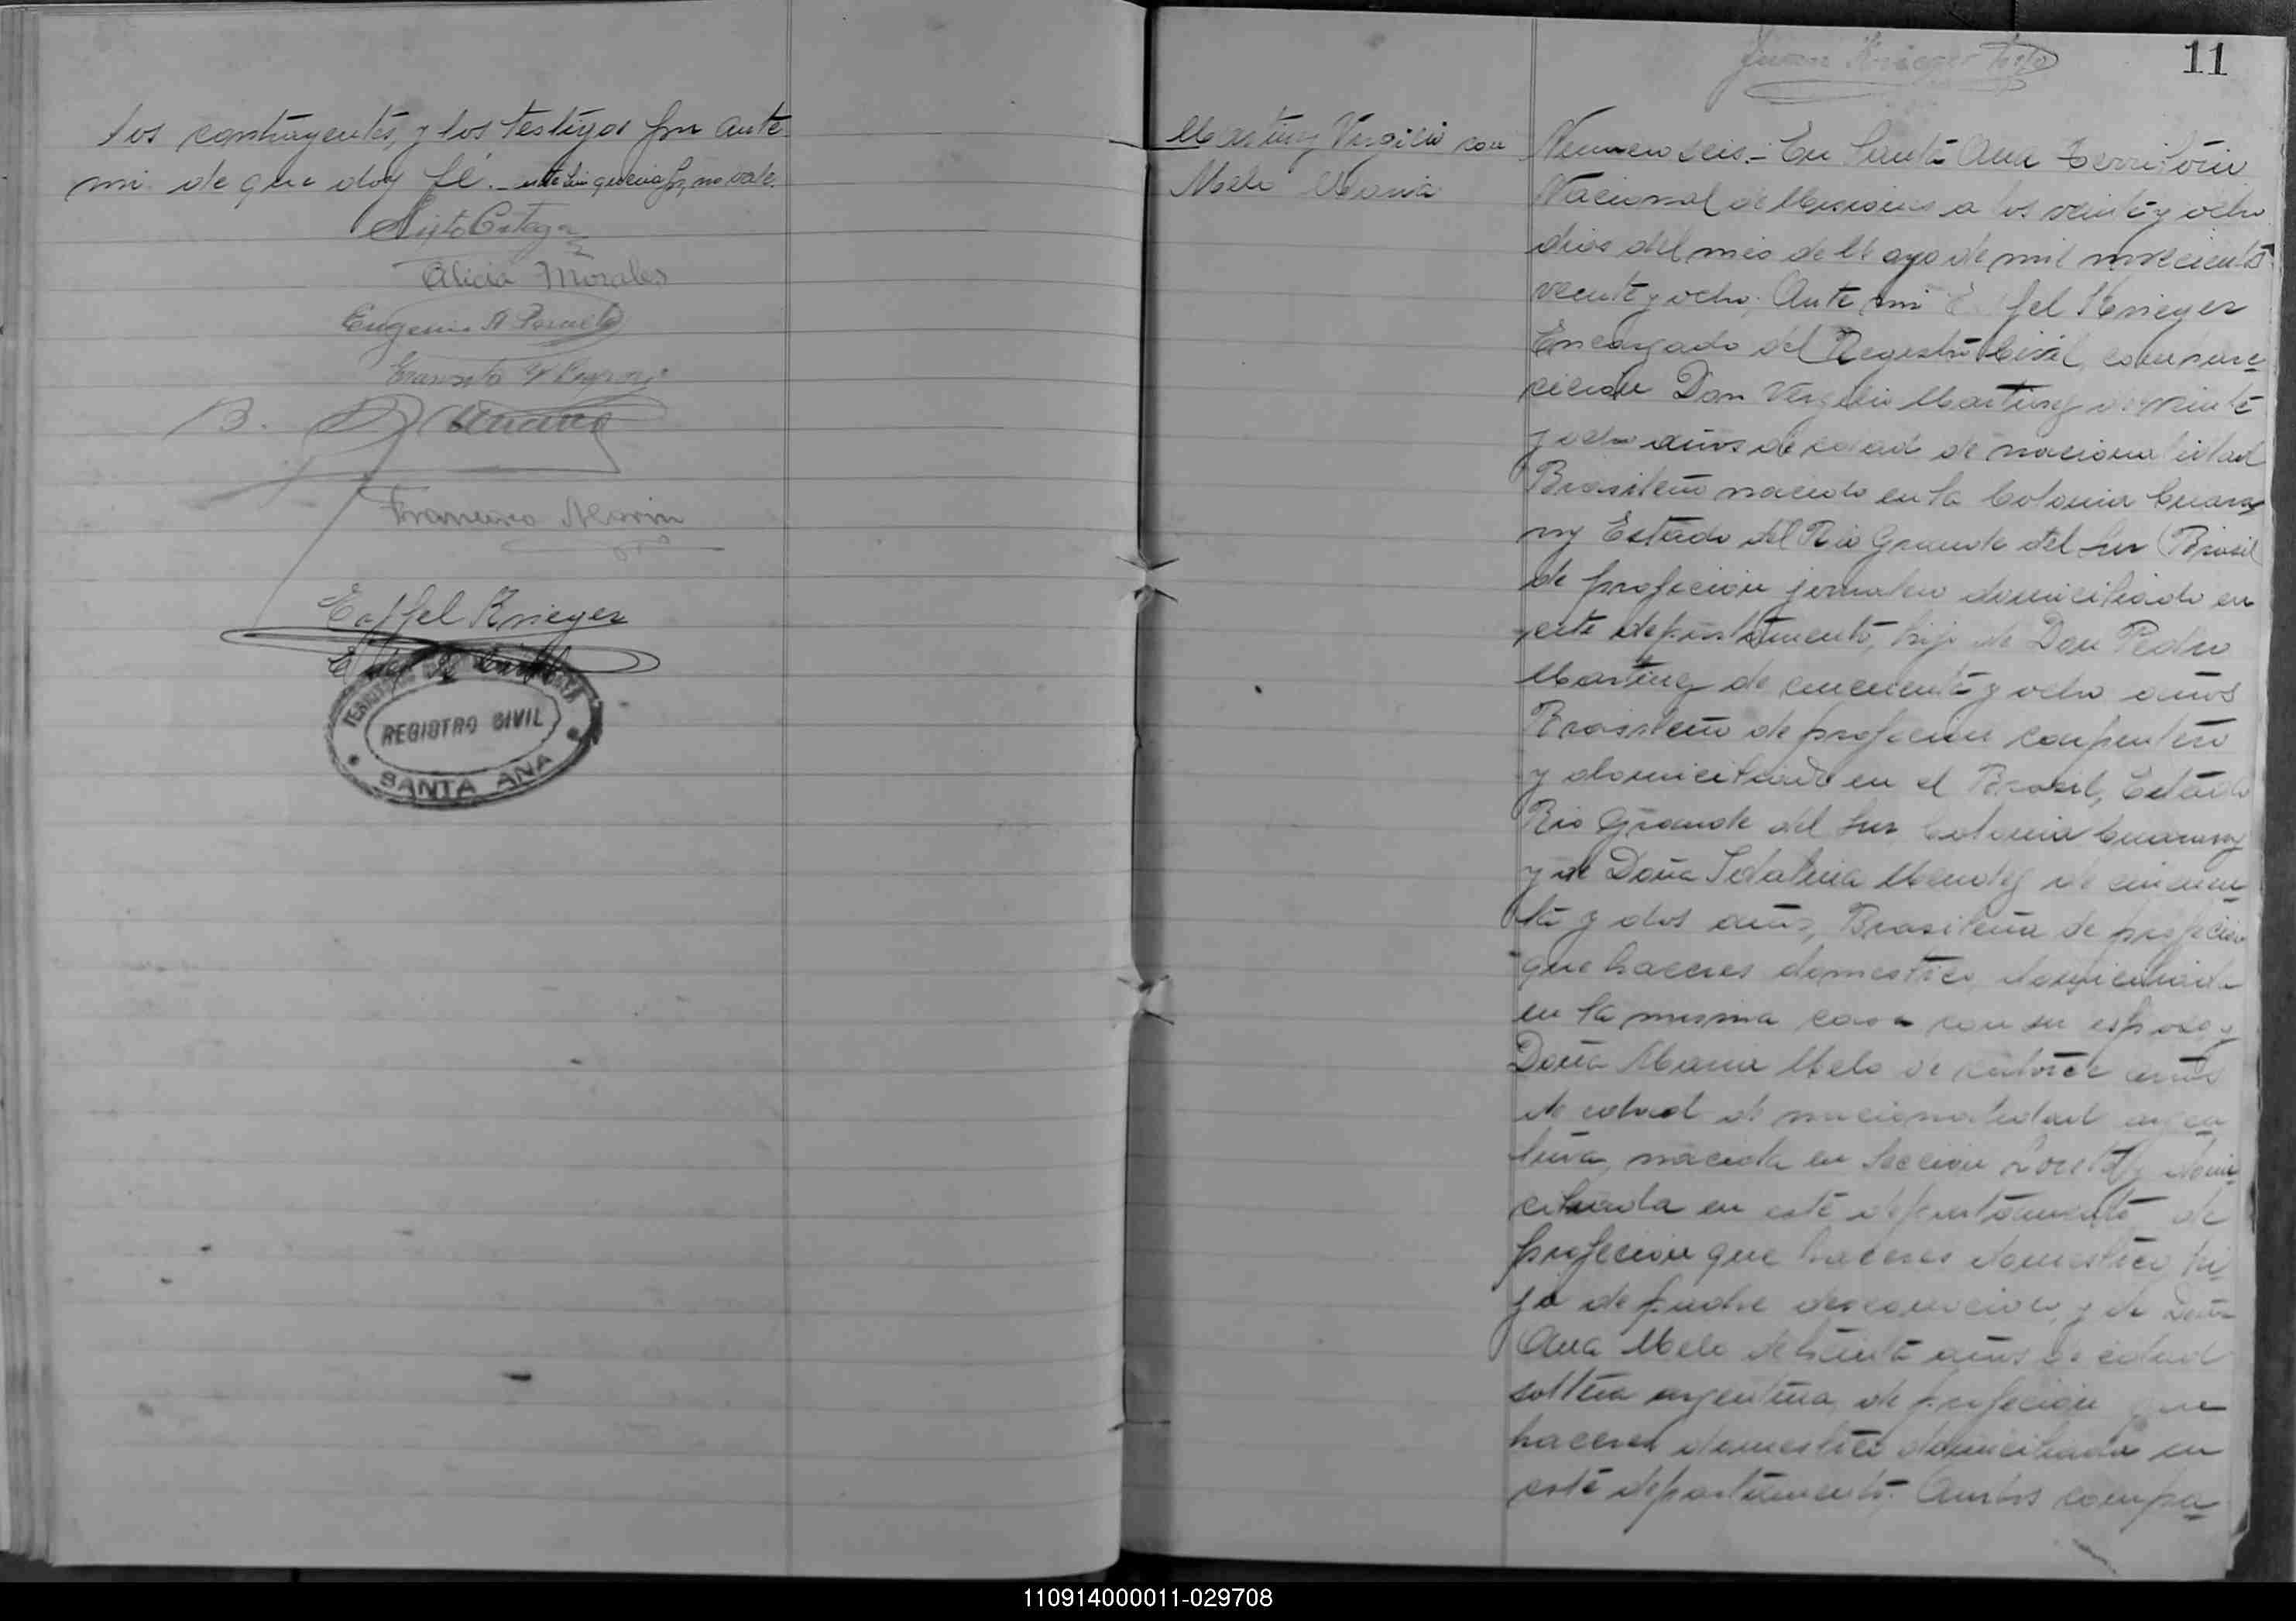 los contrayentes, y los testigos por ante
mi de que doy fé.
Sixto Ortega
Alicia Morales
Eugenio A
B.
Francisco Marin
Eiffel Krieger
E del R Civil
REGISTRO CIVIL
SANTA ANA
11
Juan Krieger
Martinz Vergilio con
Melo Maria
Numero seis.- En Santa Ana Territorio
Nacional de Misiones a los veinte y ocho
dias del mes de Mayo de mil novecientos
veinte y ocho, Ante mi E. fel Krieger
Encargado del Registro Civil, compare
cieron Don Vergilio Martinz de veinte
y ocho años de edad de nacionalidad
Brasileño nacido en la Colonia Guara
ny Estado del Rio Grande del Sur (Brasil
de profecion jornalero domiciliado en
este departamento, hijo de Don Pedro
Martinz de cincuenta y ocho años
Brasileño de profecion carpentero
y domiciliado en el Brasil, Estado
Rio Grande del Sur Colonia Guarany
y de Doña Idalina Mendez de cincuen
ta y dos años, Brasileña de profecion
que haceres domestico domiciliada
en la misma casa con su esposo y
Doña Maria Melo de catorce años
de edad de nacionalidad argen
tina, nacida en Seccion Loreto y domi
ciliada en este departamento de
profecion que haceres domestico hi
ja de padre desconocido, y de Doña
Ana Melo de treinta años de edad
soltera argentina, de profecion que
haceres domestico domiciliada en
este departamento. Ambos compa
110914000011-029708